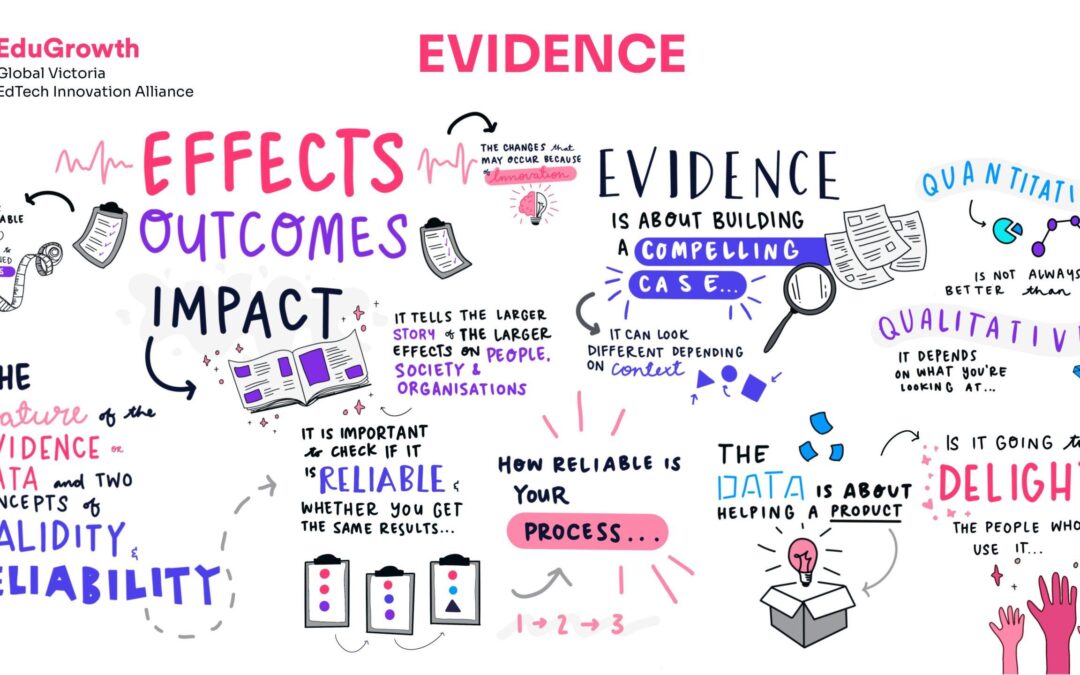 EduGrowth
Global Victoria
EdTech Innovation Alliance
EVIDENCE
EFFECTS
OUTCOMES
IMPACT
THE CHANGES that
MAY OCCUR BECAUSE
of Innovation
IT TELLS THE LARGER
STORY of THE LARGER
EFFECTS ON PEOPLE,
SOCIETY &
ORGANISATIONS
EVIDENCE
IS ABOUT BUILDING
A COMPELLING
CASE...
IT CAN LOOK
DIFFERENT DEPENDING
ON Context
QUANTITATI
IS NOT ALWAYS
BETTER than
QUALITATIV
IT DEPENDS
ON WHAT YOU'RE
LOOKING AT...
HE
ature of the
VIDENCE or
ATA and TWO
NCEPTS of
ALIDITY &
ELIABILITY
IT IS IMPORTANT
to CHECK IF IT
IS RELIABLE &
WHETHER YOU GET
THE SAME RESULTS...
HOW RELIABLE IS
YOUR
PROCESS...
1 → 2 → 3
THE
DATA IS ABOUT
HELPING A PRODUCT
IS IT GOING to
DELIGHT
THE PEOPLE WHO
USE IT...